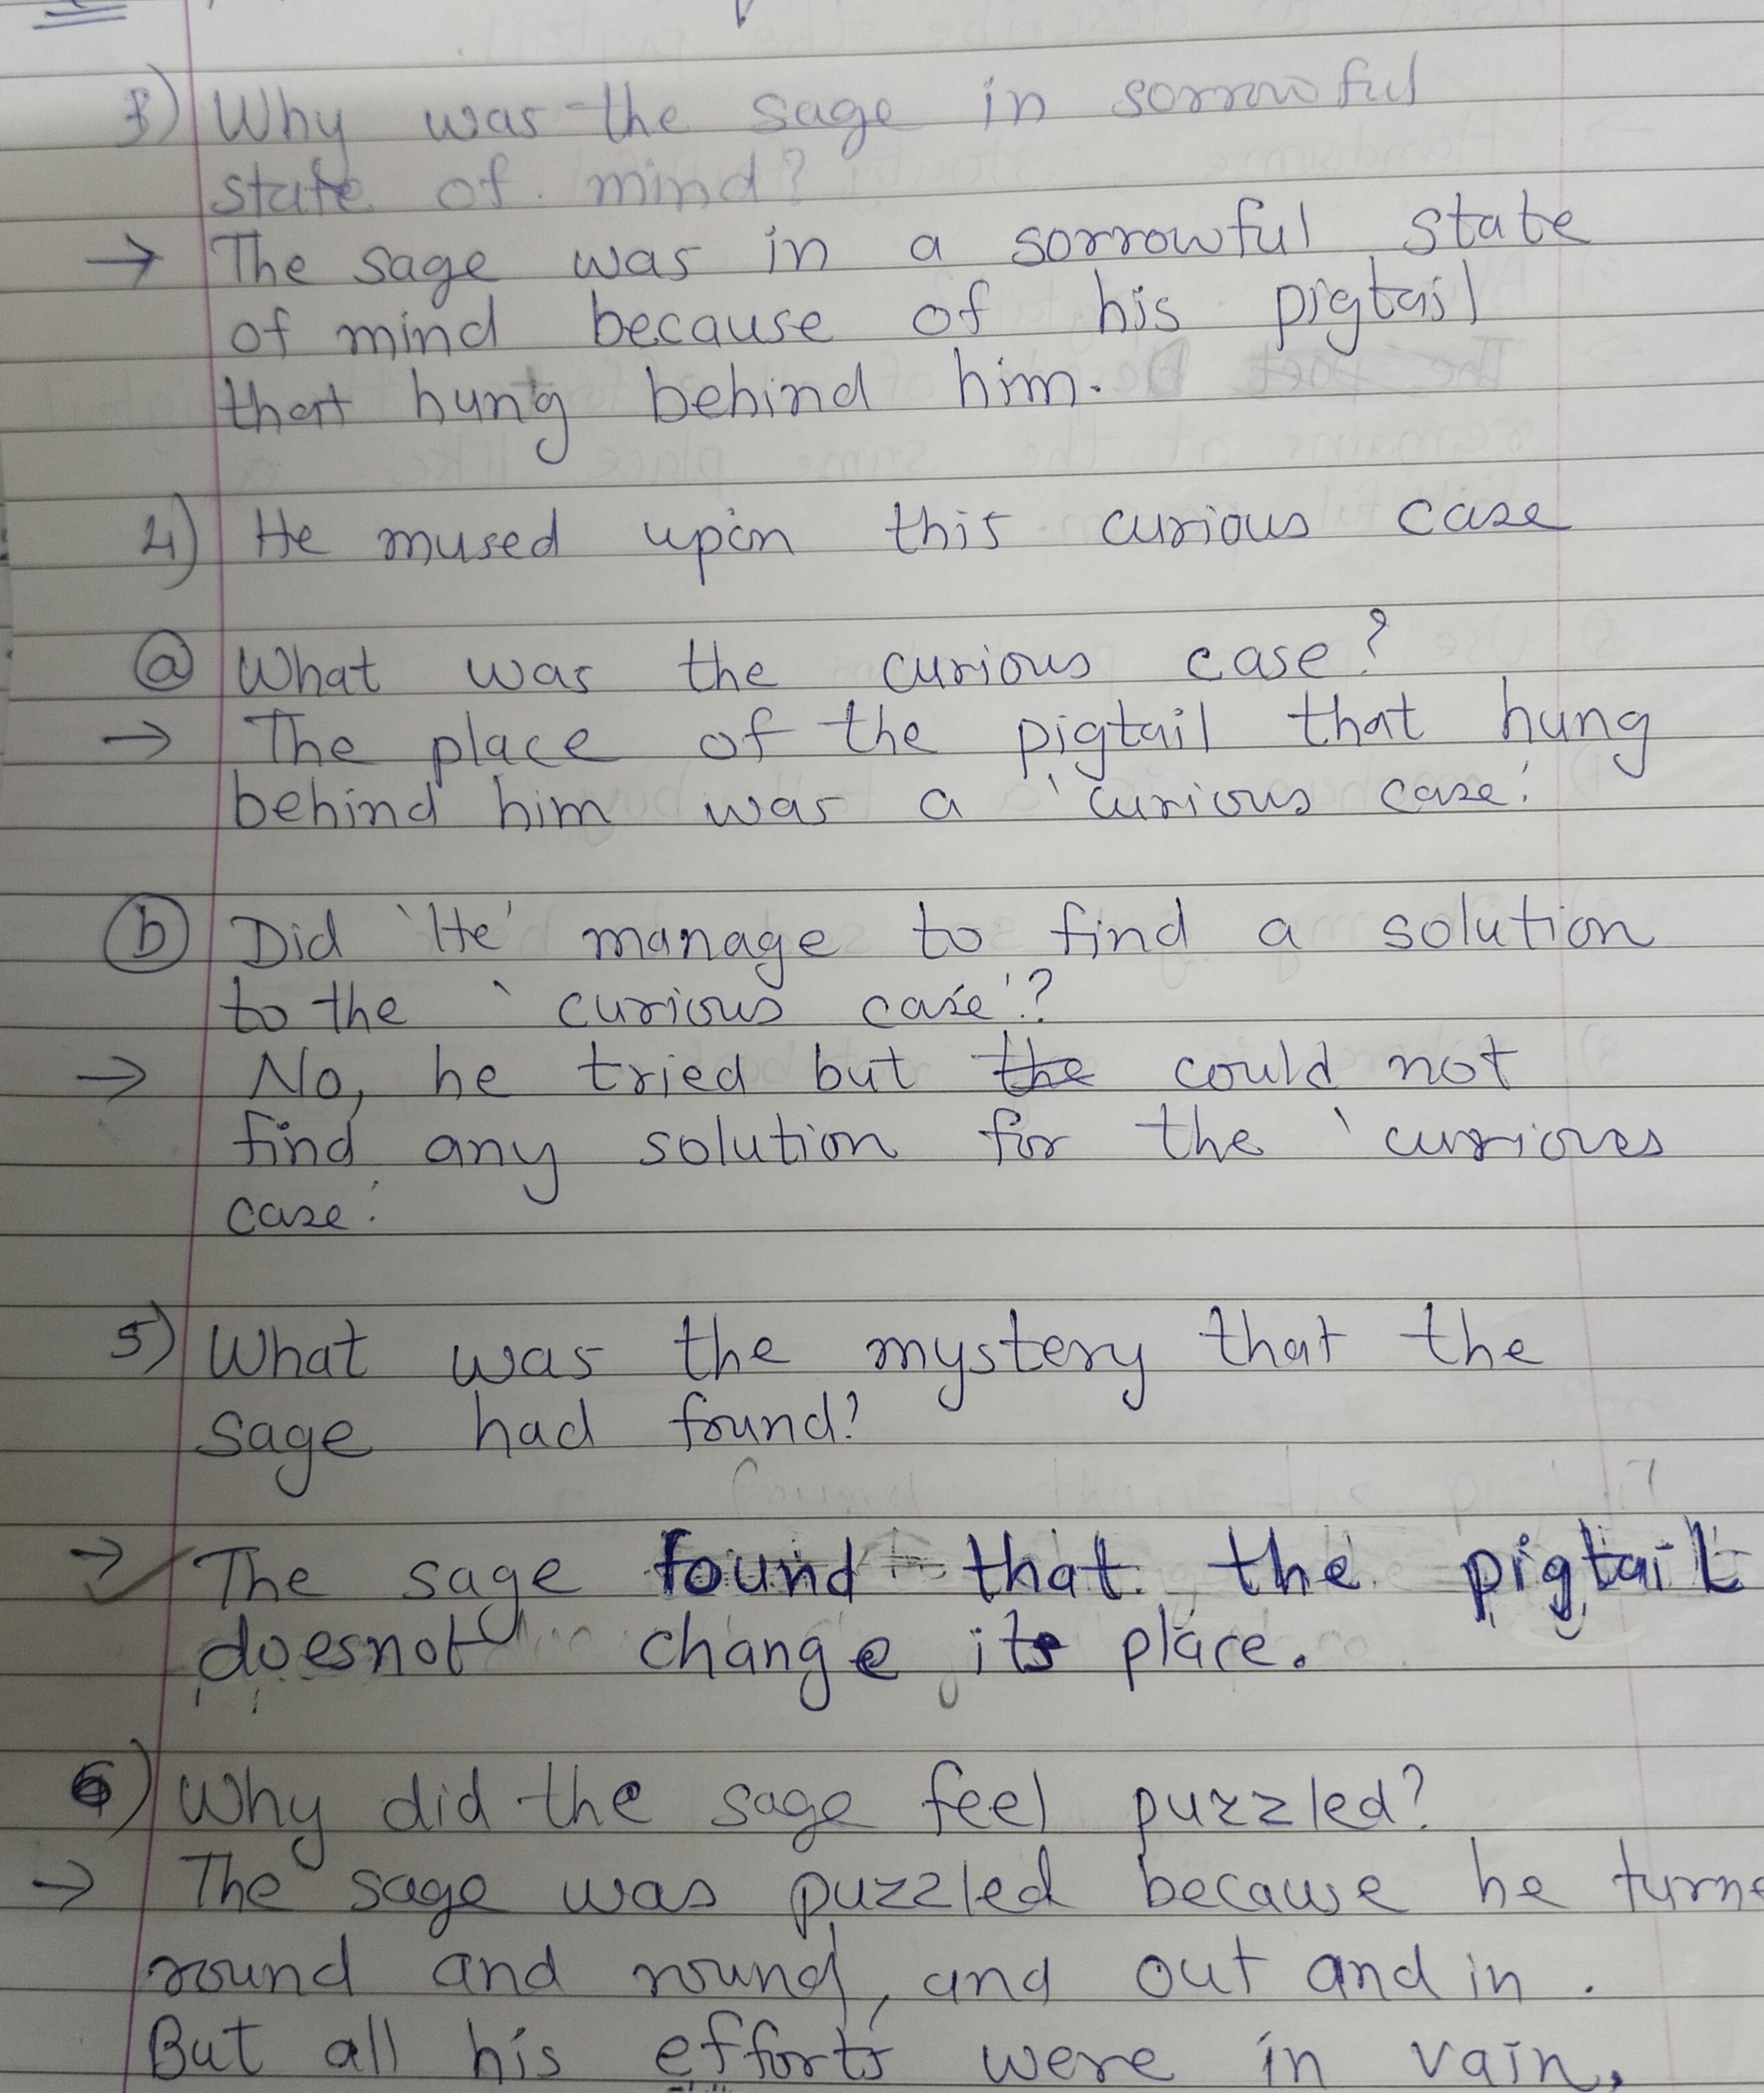 3) Why was the sage in sorrowful
state of mind?
→ The sage was in a sorrowful state
of mind because of his pigtail
that hung behind him.
4) He mused upon this curious case
ⓐ What was the curious case?
→ The place of the pigtail that hung
behind him was a 'curious case'.
ⓑ Did 'He' manage to find a solution
to the 'curious case'?
→ No, he tried but the could not
find any solution for the 'curious
case'.
5) What was the mystery that the
sage had found?
→ The sage found that the pigtail
doesnot change its place.
6) Why did the sage feel puzzled?
→ The sage was puzzled because he turne
round and round, and out and in.
But all his efforts were in vain.